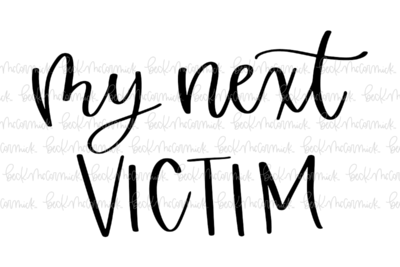 my next
VICTIM